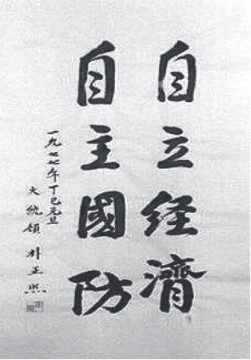 自立経濟
自主國防
一九七七年丁巳元旦
大統領 朴正熙